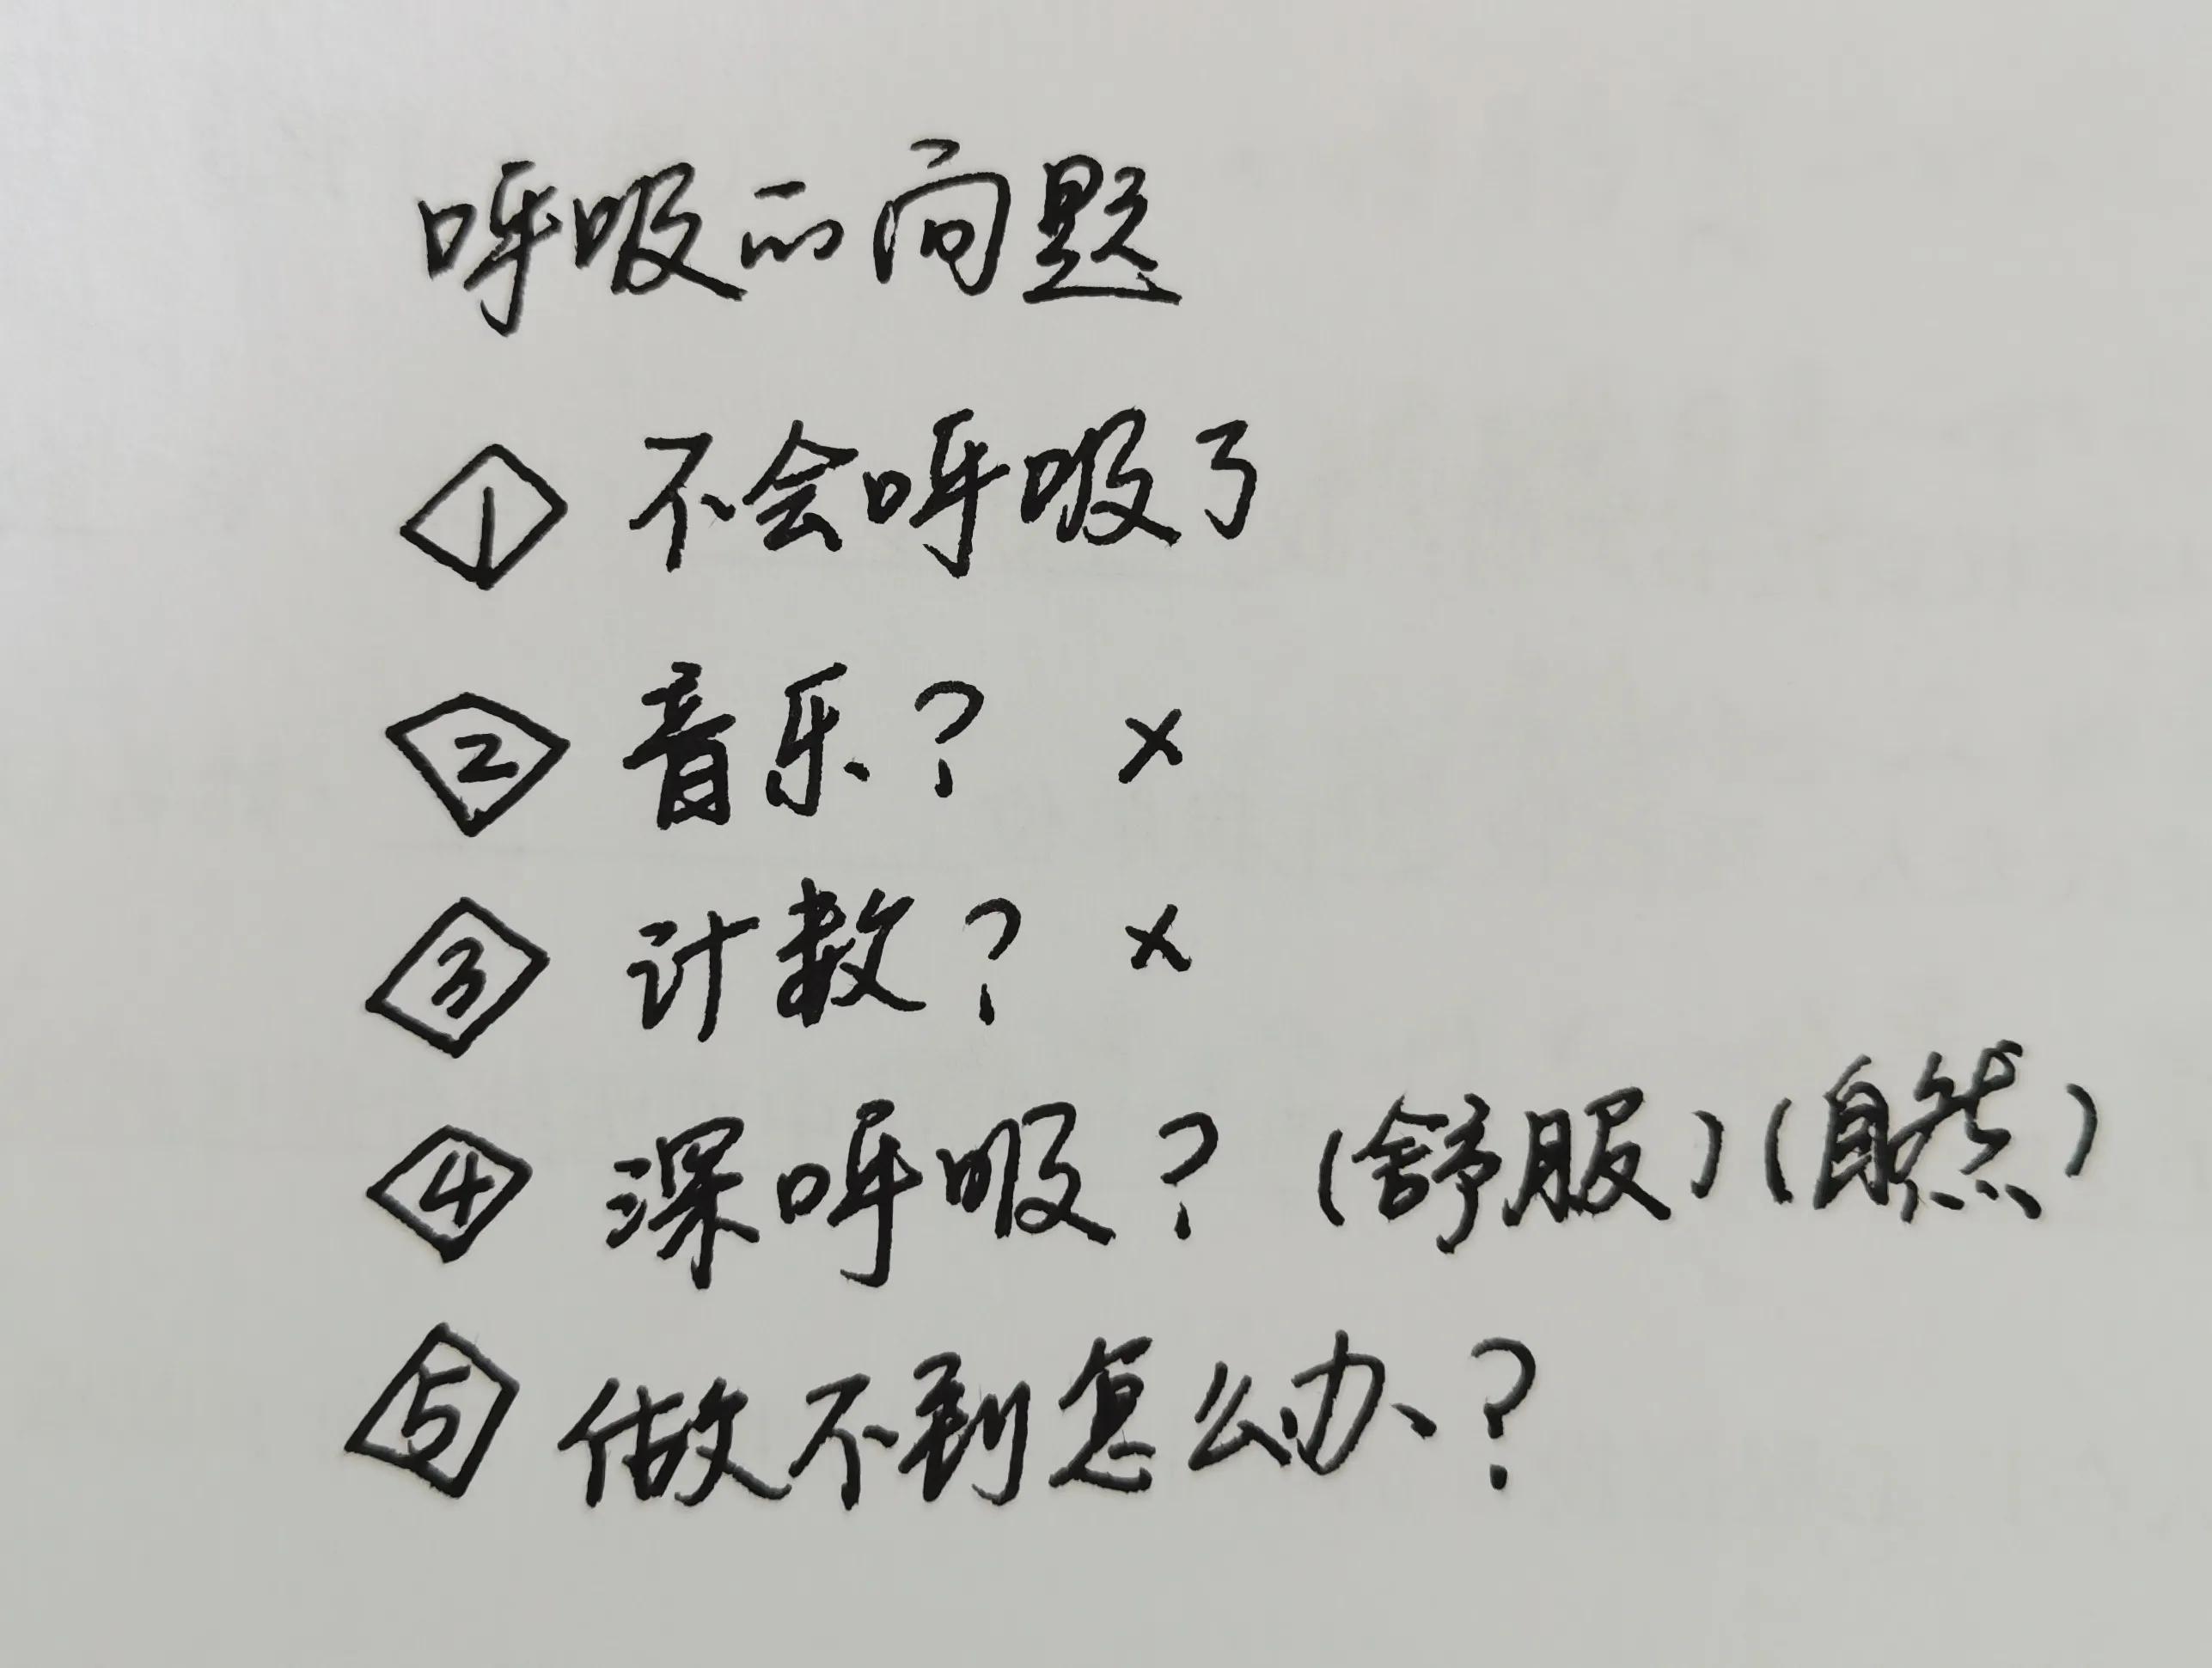 呼吸的问题
1 不会呼吸了
2 音乐? ×
3 计数? ×
4 深呼吸? (舒服)(自然)
5 做不到怎么办?